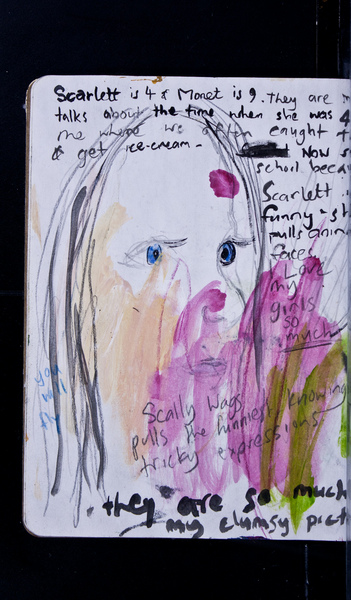 Scarlett is 4 & Monet is 9. They are
talks about the time when she was 4
me where we often caught
& get ice-cream -
Now
school
Scarlett
funny - 
pulls
faces.
Love
my
girls
so
much
you
will
fly
Scally wags
pulls the funniest knowing
tricky expressions
they are so much
my clumsy